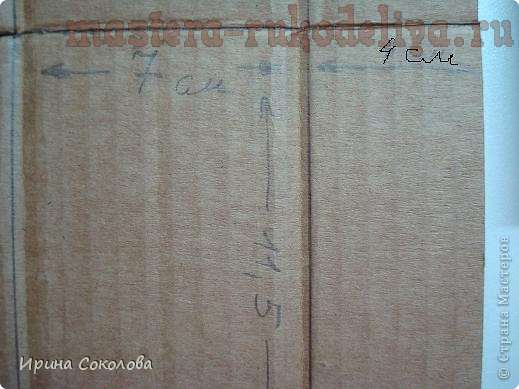 mastera-rukodeliya.ru
7 см
4 см
11,5
Ирина Соколова
© Страна Мастеров